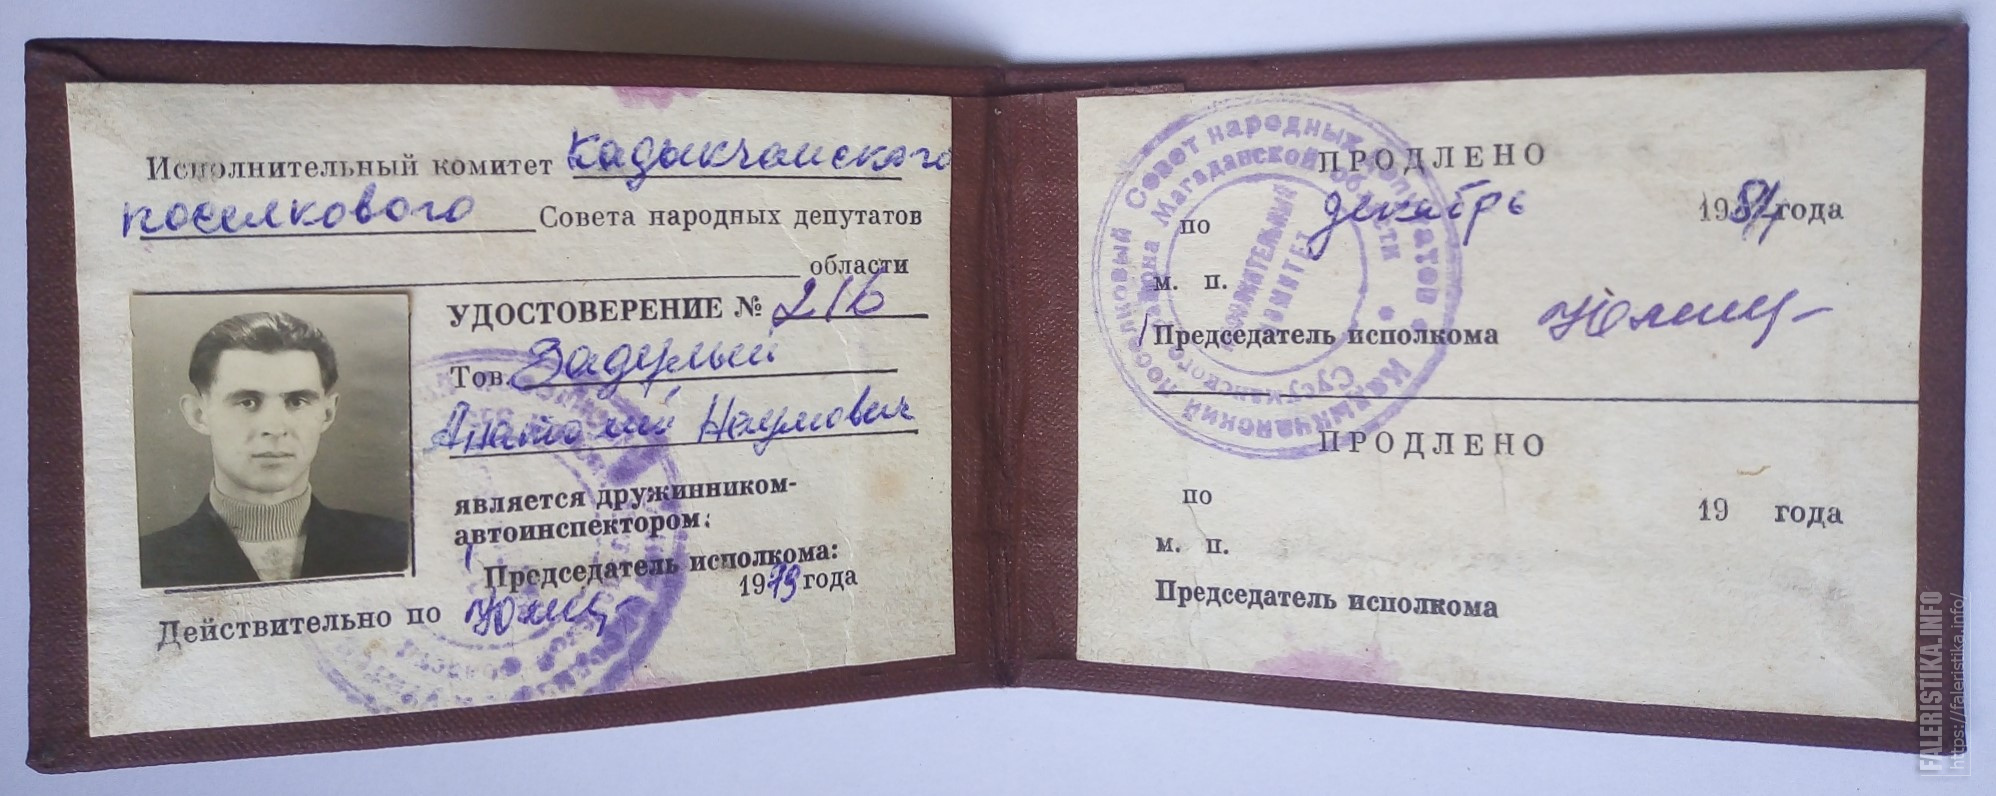 Исполнительный комитет Кадыкчанского
поселкового Совета народных депутатов
области
УДОСТОВЕРЕНИЕ № 216
Тов. Задулый
Анатолий Наумович
является дружинником-
автоинспектором.
Председатель исполкома:
1979 года
Действительно по
ПРОДЛЕНО
по декабрь 1984 года
м. п.
Председатель исполкома
ПРОДЛЕНО
по 19 года
м. п.
Председатель исполкома
Кадыкчанский поселковый Совет народных депутатов
Сусуманского района Магаданской области
ИСПОЛНИТЕЛЬНЫЙ
КОМИТЕТ
FALERISTIKA.INFO
https://faleristika.info/